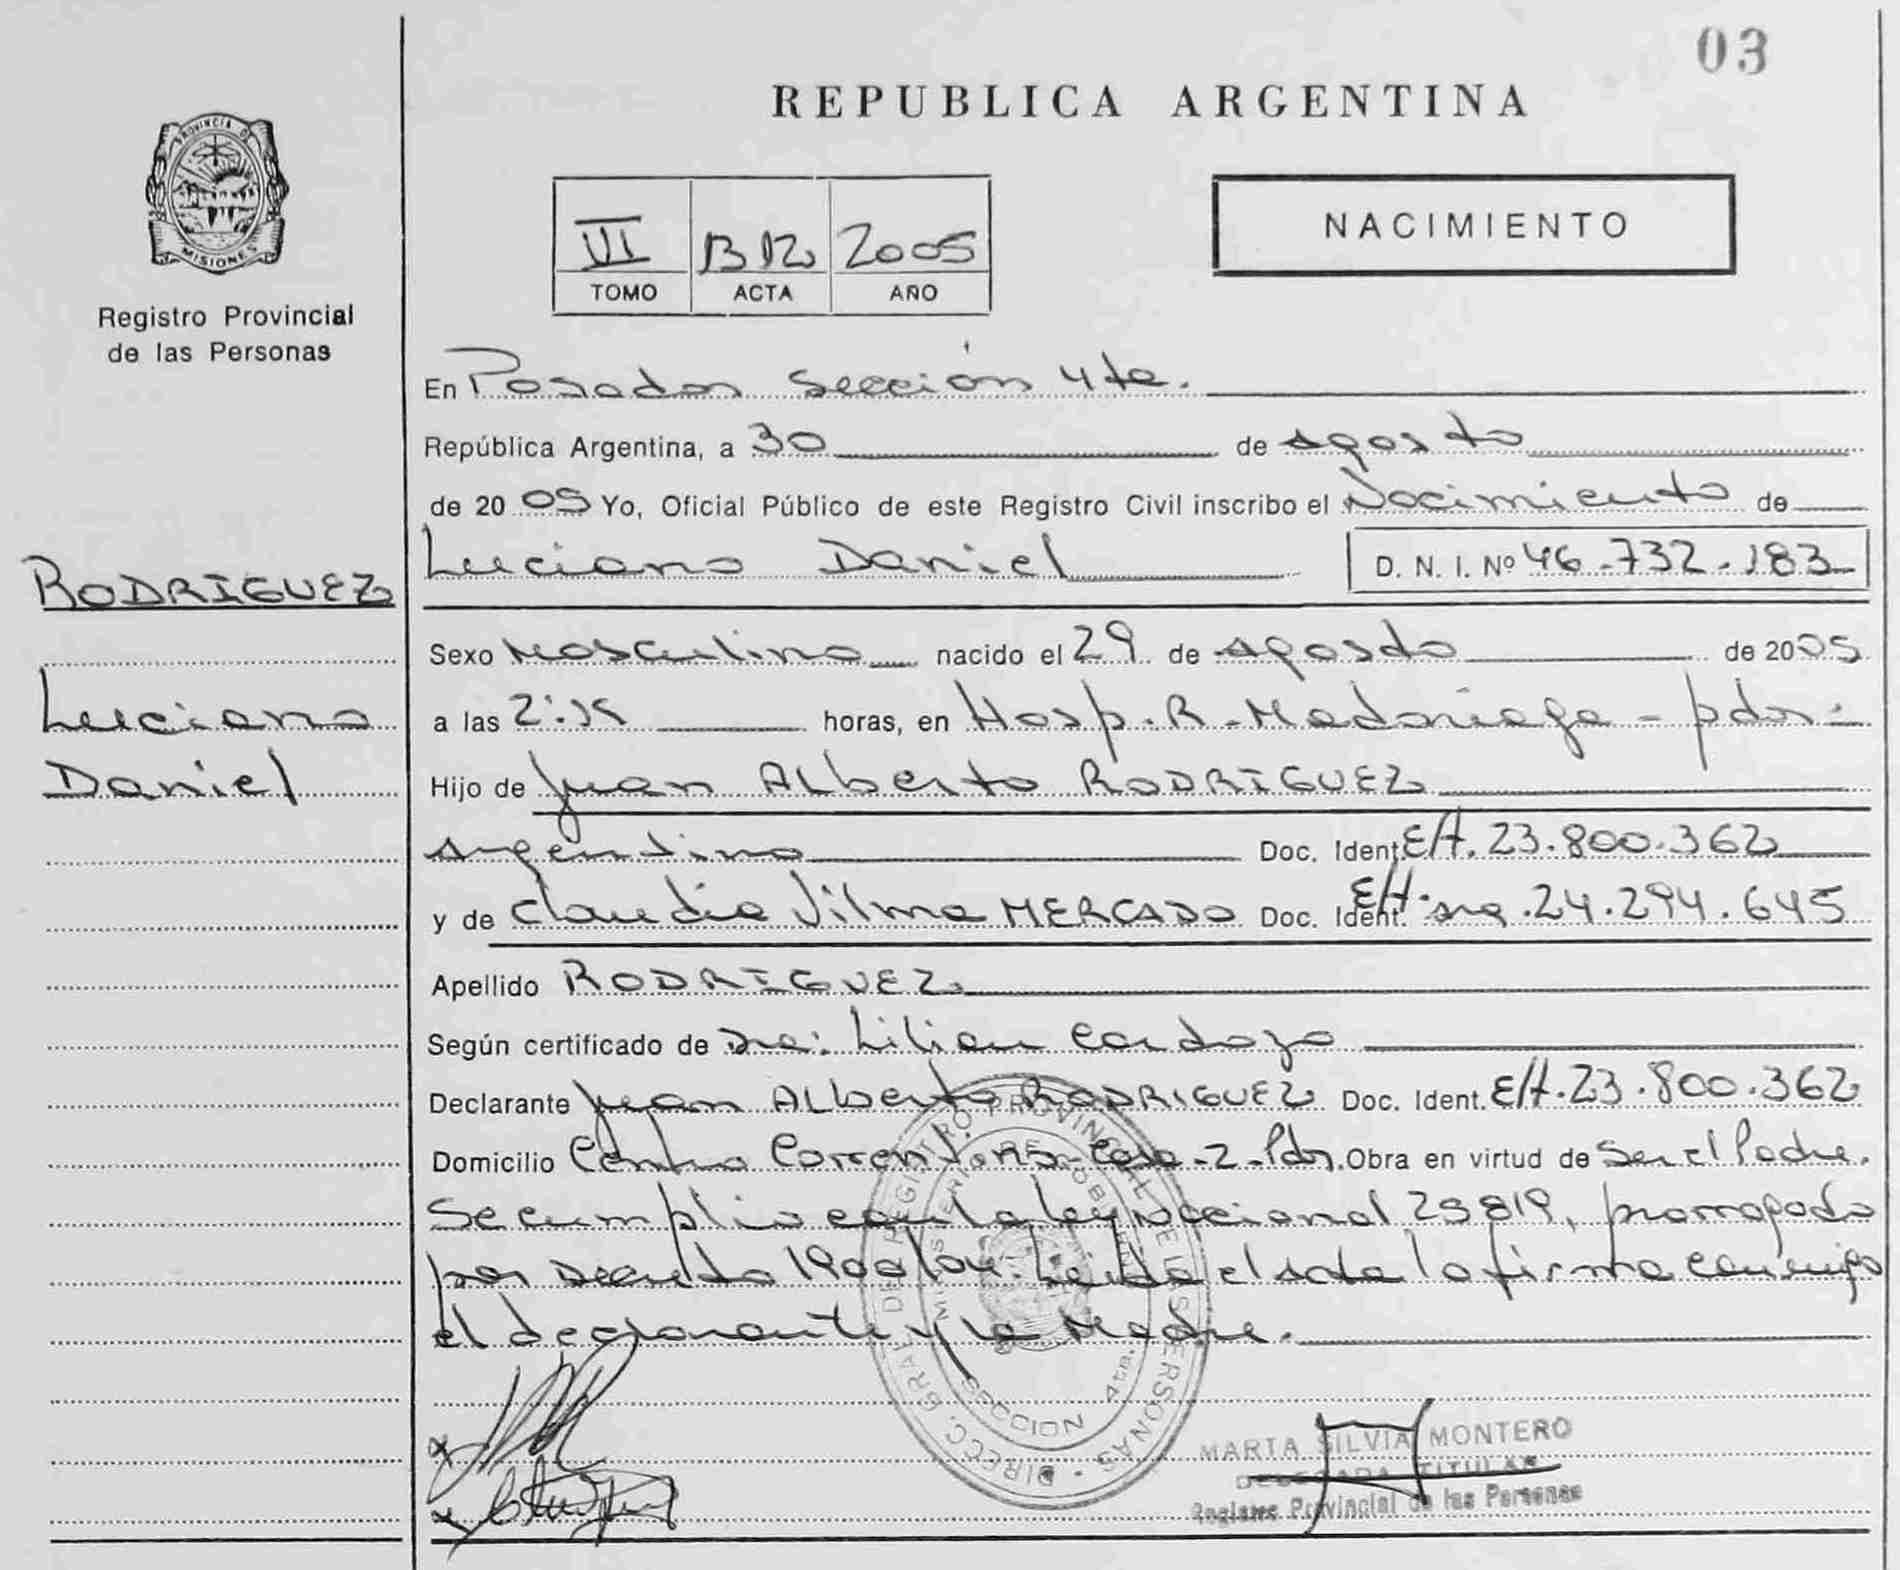 03
REPUBLICA ARGENTINA
PROVINCIA DE
MISIONES
Registro Provincial
de las Personas
VI 1312 2005
TOMO ACTA AÑO
NACIMIENTO
En Posadas Sección 4ta.
República Argentina, a 30 de agosto
de 2005 Yo, Oficial Público de este Registro Civil inscribo el Nacimiento de
Luciano Daniel D. N. I. Nº 46.732.183
RODRIGUEZ
Luciano
Daniel
Sexo Masculino nacido el 29 de agosto de 2005
a las 2:15 horas, en Hosp. R. Madariaga - pdas.
Hijo de Juan ALberto RODRIGUEZ
argentino Doc. Ident. E/A. 23.800.362
y de Claudia Vilma MERCADO Doc. Ident. E/A. arg. 24.294.645
Apellido RODRIGUEZ
Según certificado de Dra: Lilian Cardozo
Declarante Juan ALberto RODRIGUEZ Doc. Ident. E/A. 23.800.362
Domicilio Centro Correntino - Casa - 2 - Pdas. Obra en virtud de ser el Padre.
Se cumplio con la ley nacional 25819, prorrogado
por Decreto 1900/04. Leida el acta la firma conmigo
el declarante y la Madre.
DIRECC. GRAL DE REGISTRO PROVINCIAL DE LAS PERSONAS
SECCION 4ta.
MARTA SILVIA MONTERO
DELEGADA TITULAR
Registro Provincial de las Personas